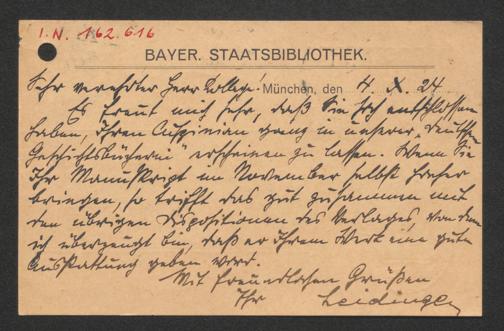 I.N. 162.616
BAYER. STAATSBIBLIOTHEK.
Sehr verehrter Herr Kollege! München, den 4. X. 24.
Es freut mich sehr, daß Sie sich entschlossen
haben, Ihren Cuspinian ganz in unserer „Deutsche
Geschichtsbücherei“ erscheinen zu lassen. Wenn Sie
Ihr Manuskript im November selbst hieher
bringen, so trifft das gut zusammen mit
den übrigen Dispositionen des Verlages, von dem
ich überzeugt bin, daß er Ihrem Werk eine gute
Ausstattung geben wird.
Mit freundlichen Grüßen
Ihr Leidinger